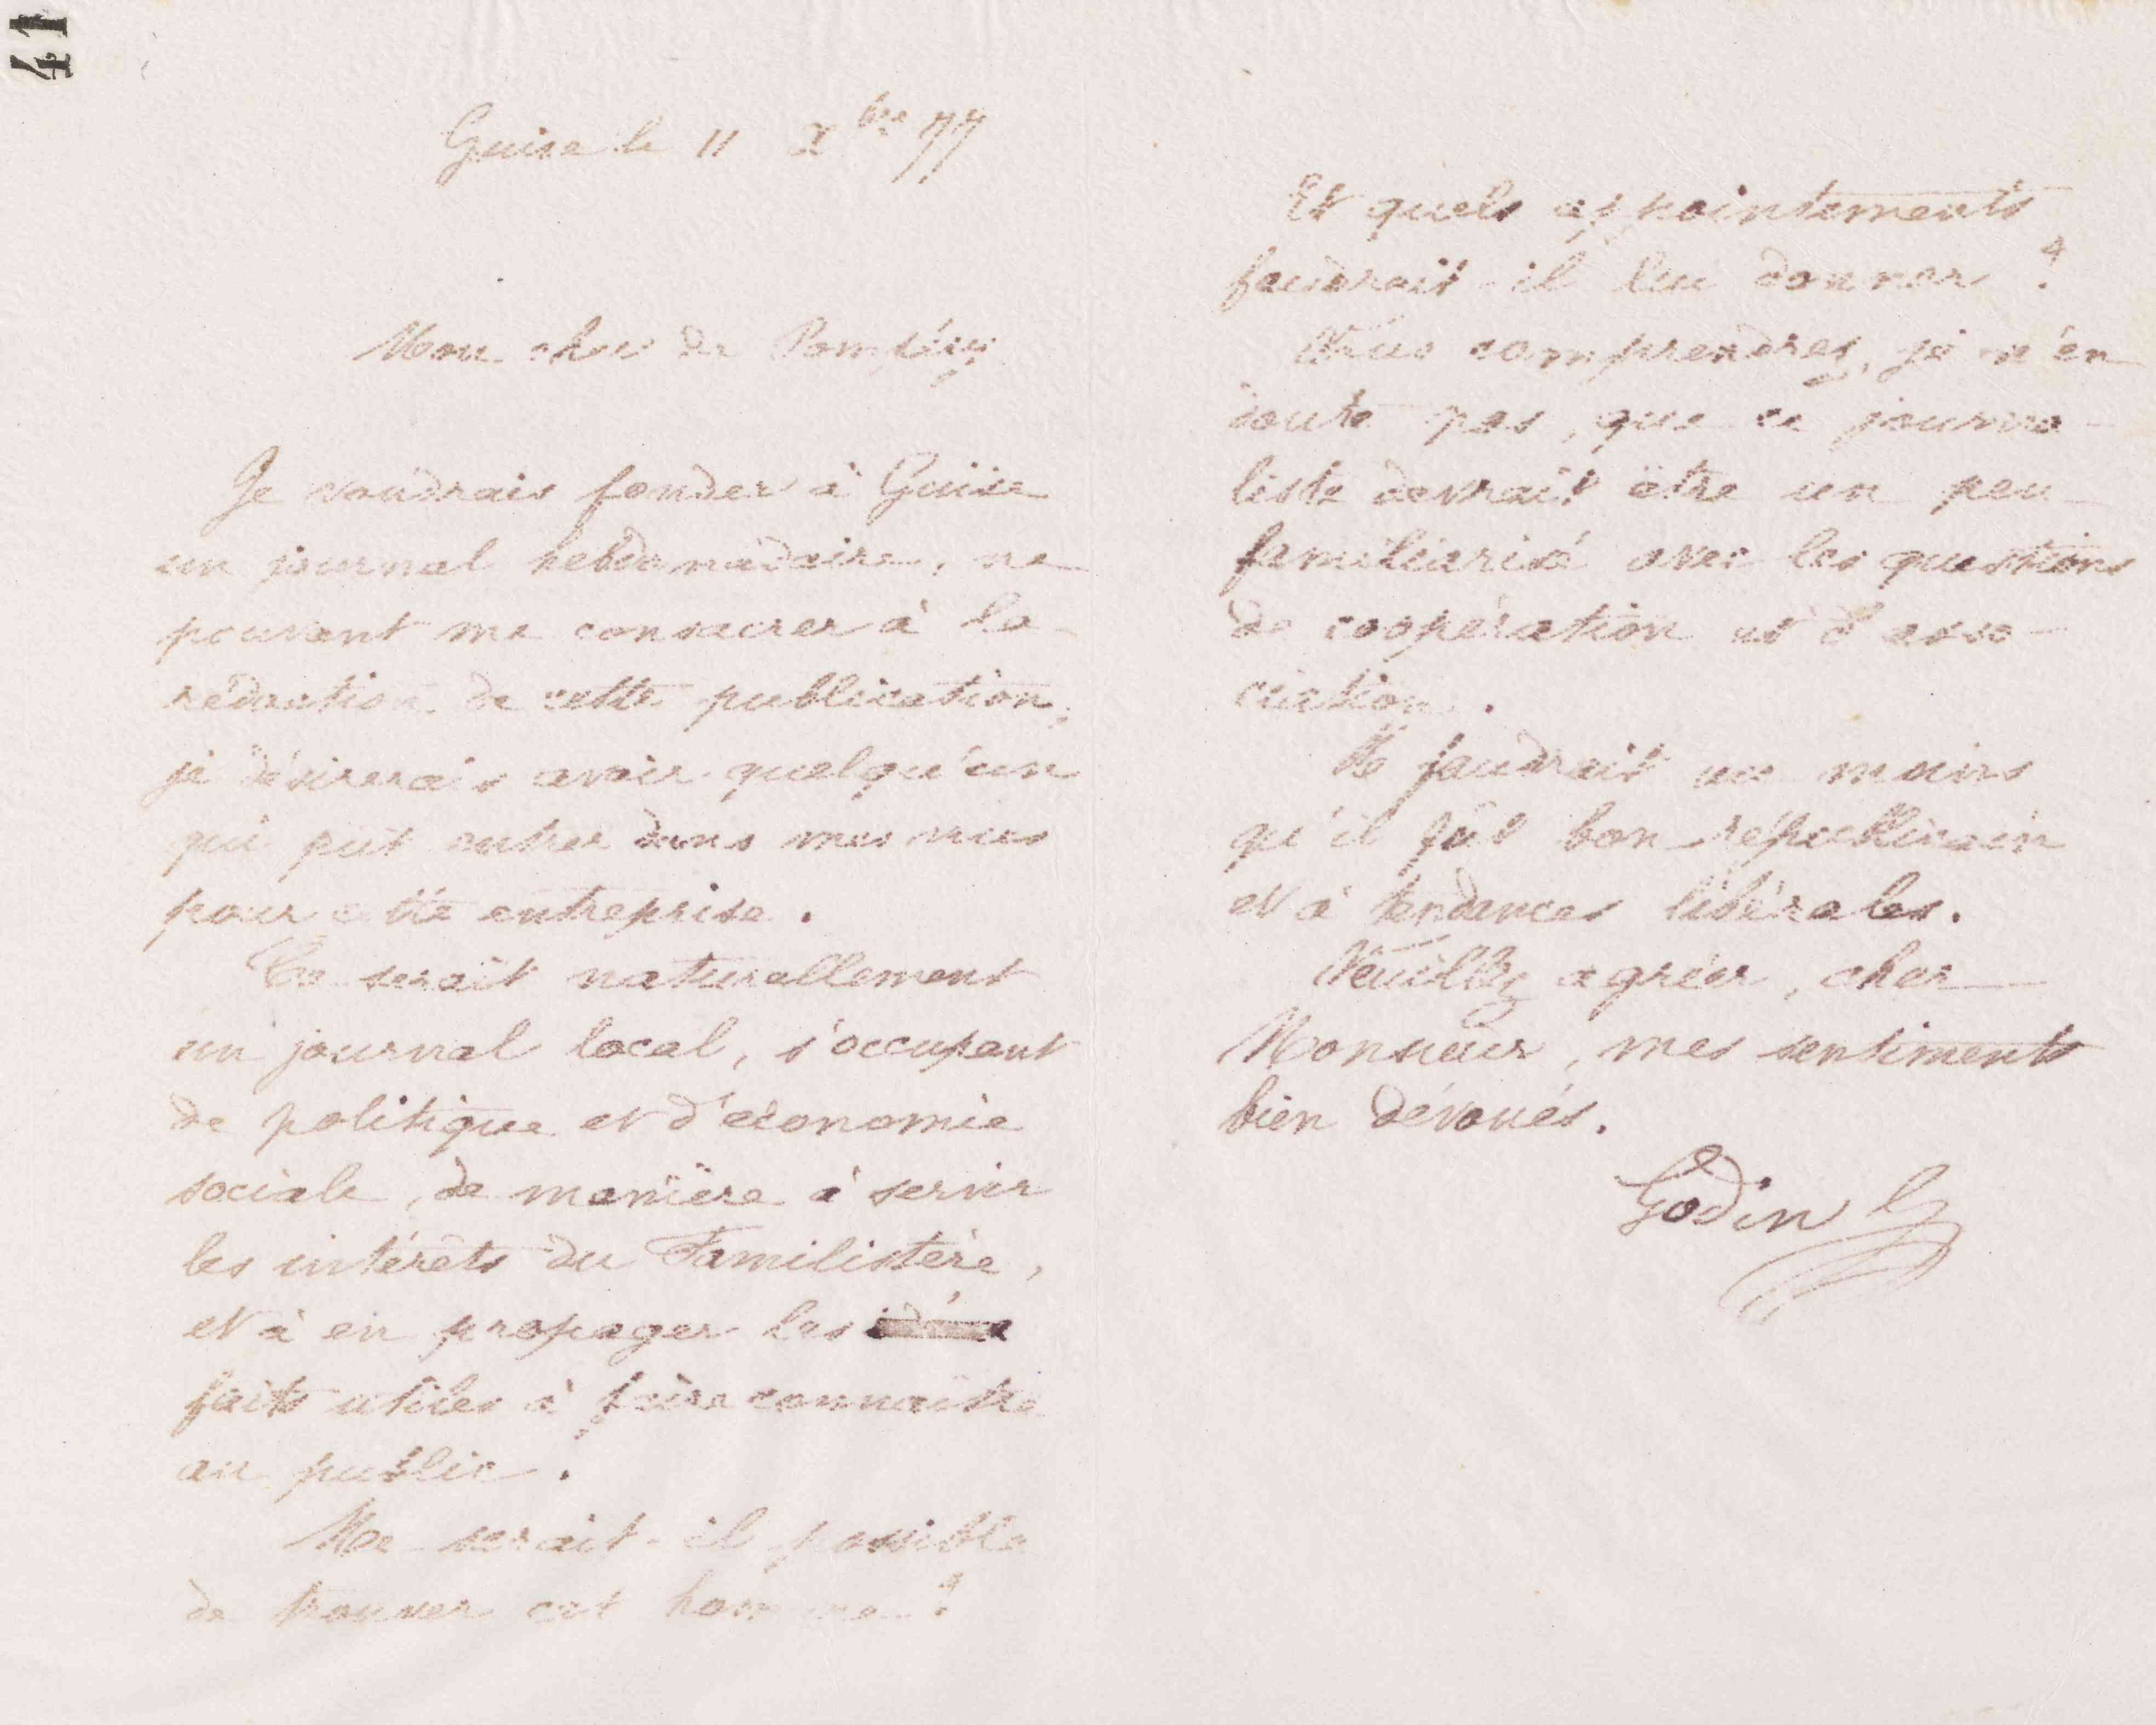 41
Guise le 11 Xbre 77
Mon cher de Pompéry
Je voudrais fonder à Guise
un journal hebdomadaire, ne
pouvant me consacrer à la
rédaction de cette publication,
je désirerais avoir quelqu'un
qui put entrer dans mes vues
pour cette entreprise.
Ce serait naturellement
un journal local, s'occupant
de politique et d'économie
sociale, de manière à servir
les intérêts du Familistère,
et à en propager les idées
faits utiles à faire connaître
au public.
Me serait-il possible
de trouver cet homme ?
Et quels appointements
faudrait-il lui donner ?
Vous comprendrez, je n'en
doute pas, que ce journa-
liste devrait être un peu
familiarisé avec les questions
de coopération et d'asso-
ciation.
Il faudrait au moins
qu'il fût bon républicain
et à tendances libérales.
Veuillez agréer, cher
Monsieur, mes sentiments
bien dévoués.
Godin